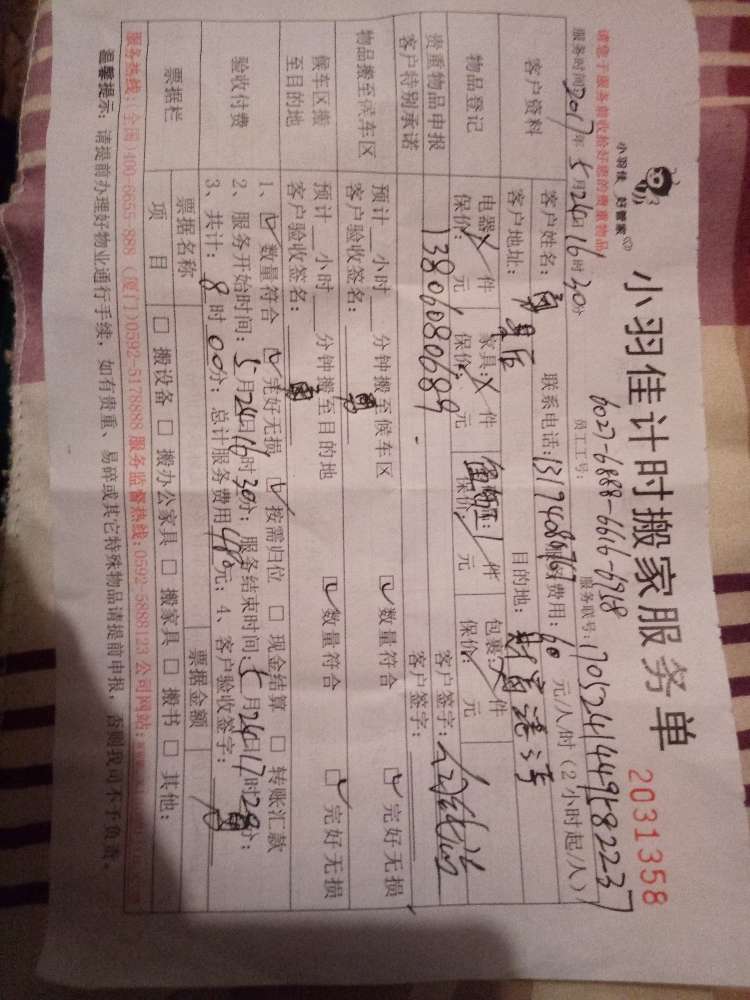 小羽佳 好管家
小羽佳计时搬家服务单
2031358
请您于服务前收拾好您的贵重物品
员工工号: 6027-6888-6616-6968
服务联号: 1705241449582237
服务时间2017年5月24日16时30分
客户资料
客户姓名:
联系电话:13174080767
费用:60元/人/时(2小时起/人)
客户地址:
目的地: 财富港湾
物品登记
电器:╳件 家具:╳件 件 包裹:件
保价:元 保价:元 保价:元 保价:元
贵重物品申报
13806080689
客户签字:
客户特别承诺
客户签字:
物品搬至候车区
预计 小时 分钟搬至候车区 ☑数量符合 ☑完好无损
客户验收签名:
候车区搬至目的地
预计 小时 分钟搬至目的地 ☑数量符合 ☑完好无损
客户验收签名:
验收付费
1、☑数量符合 ☑完好无损 ☑按需归位 □现金结算 □转账汇款
2、服务开始时间:5月24日16时30分; 服务结束时间:5月24日17时28分;
3、共计:8时00分; 总计服务费用480元; 4、客户验收签字:
票据栏
票据名称 票据金额
项目 □搬设备 □搬办公家具 □搬家具 □搬书 □其他:
服务热线:(全国)400-6655-888 (厦门)0592-5178888 服务监督热线:0592-5888123 公司网站:
温馨提示: 请提前办理好物业通行手续,如有贵重、易碎或其它特殊物品请提前申报,否则我司不予负责。